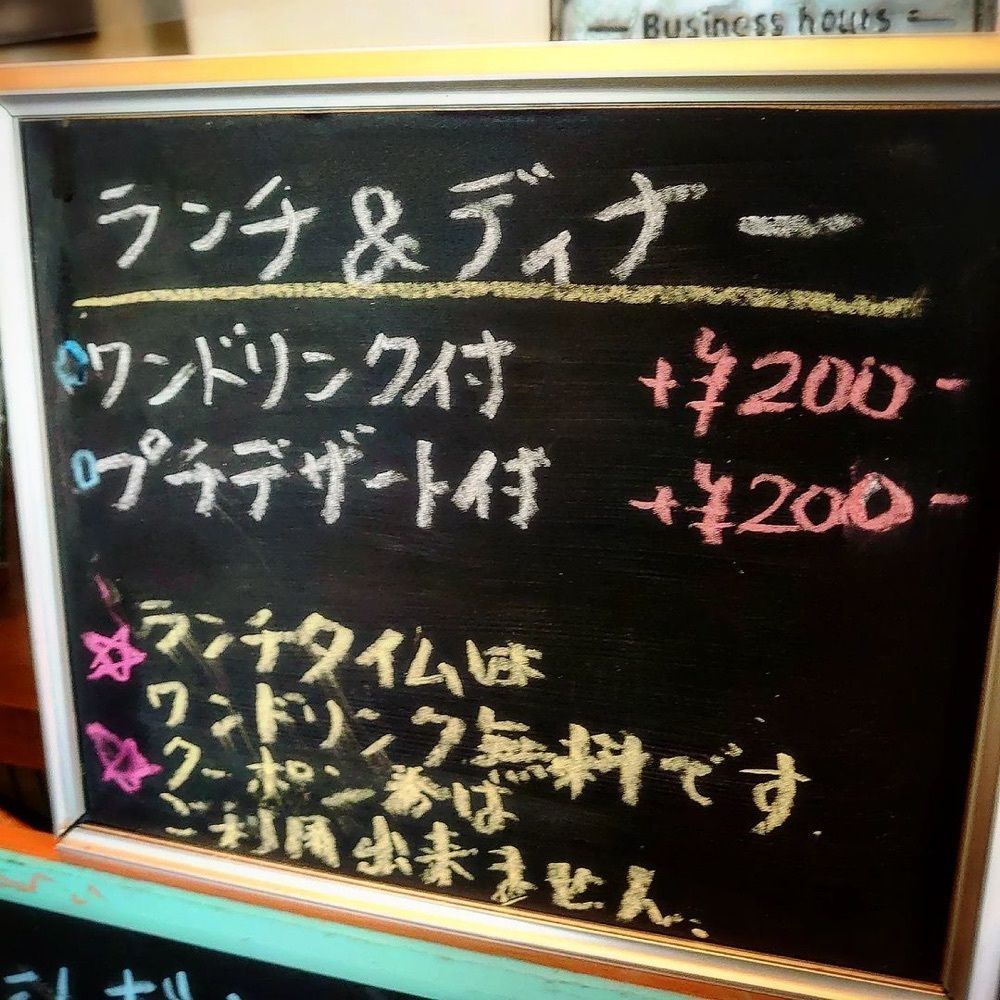 — Business hours —
ランチ & ディナー
ワンドリンク付 +¥200-
プチデザート付 +¥200-
☆ ランチタイムは
ワンドリンク無料です
☆ クーポン券は
ご利用出来ません